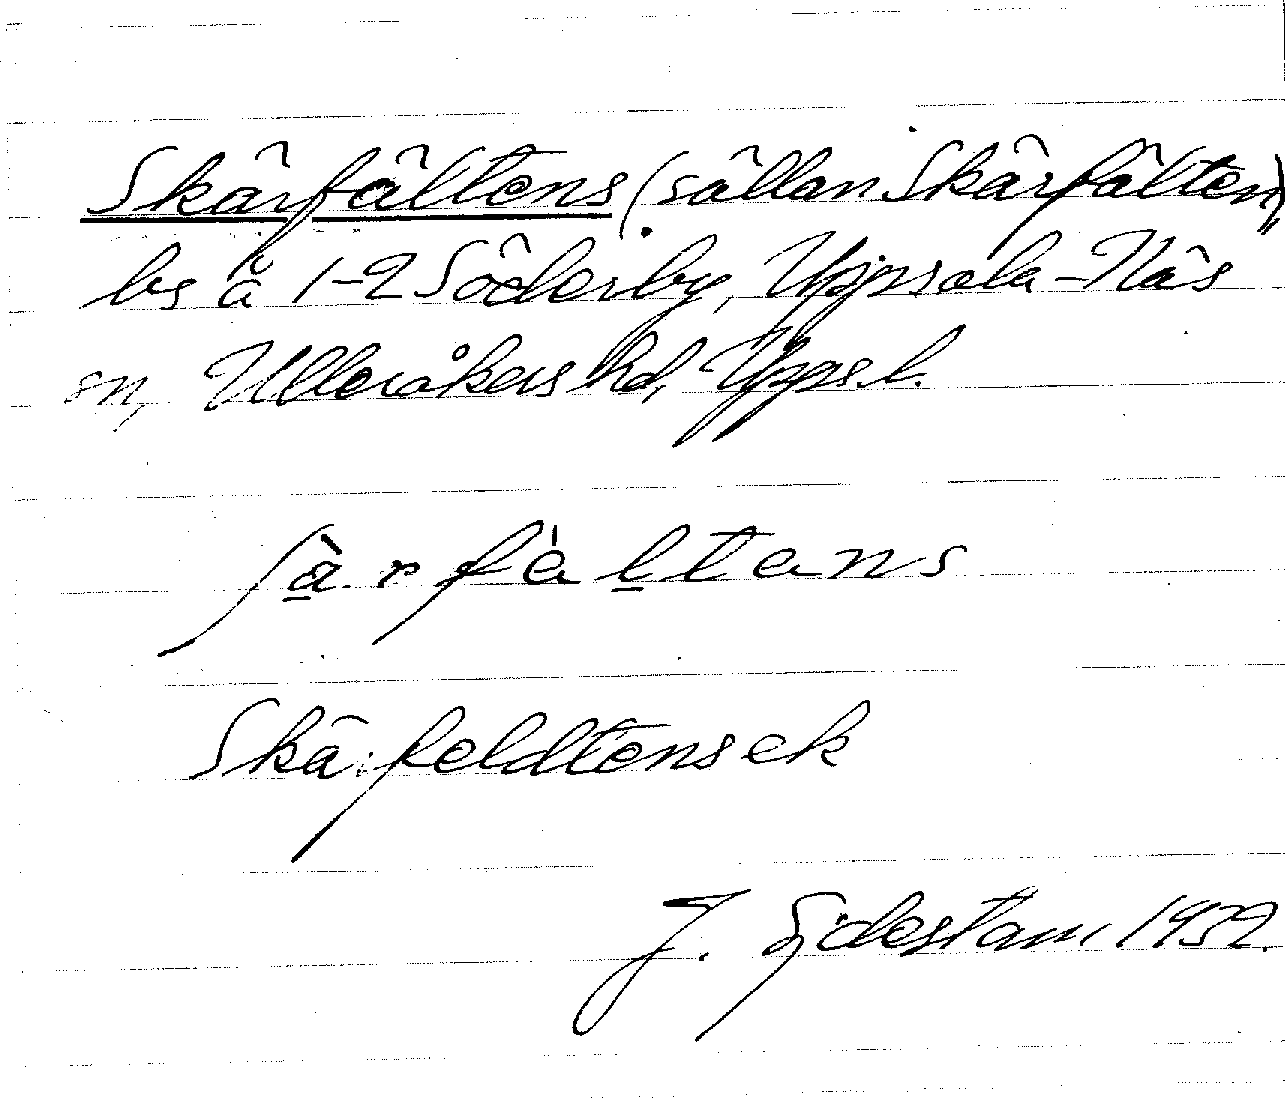 Skärfältens (sällan Skärfälten),
bs å 1-2 Söderby, Uppsala-Näs
sn, Ulleråkers hd, Upps. l.
ʃä̀rfàltans
Skärfeldtens ek
J. 1932.